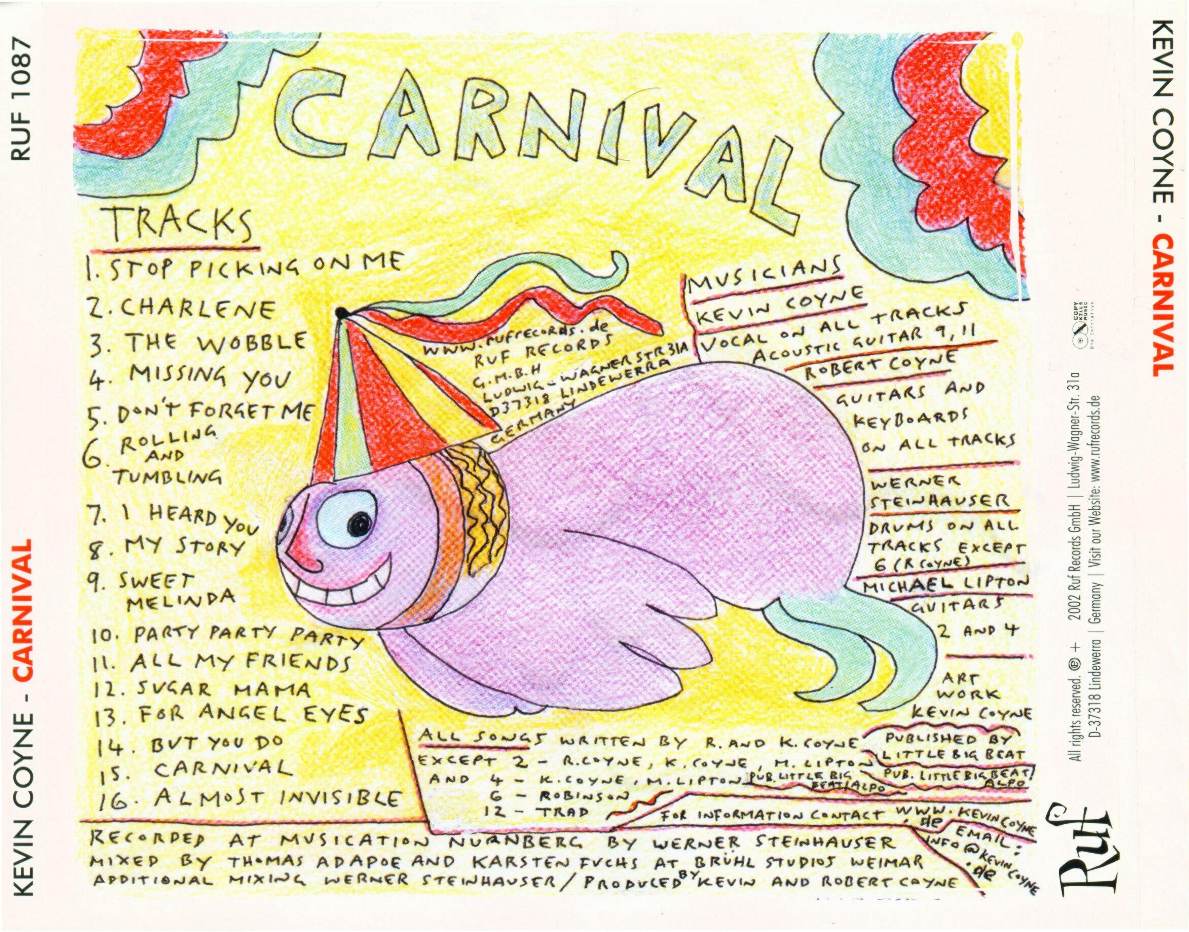 RUF 1087
KEVIN COYNE - CARNIVAL
CARNIVAL
TRACKS
1. STOP PICKING ON ME
2. CHARLENE
3. THE WOBBLE
4. MISSING YOU
5. DON'T FORGET ME
6. ROLLING
AND
TUMBLING
7. I HEARD YOU
8. MY STORY
9. SWEET
MELINDA
10. PARTY PARTY PARTY
11. ALL MY FRIENDS
12. SUGAR MAMA
13. FOR ANGEL EYES
14. BUT YOU DO
15. CARNIVAL
16. ALMOST INVISIBLE
www.rufrecords.de
RUF RECORDS
G.M.B.H
LUDWIG-WAGNER STR 31A
D37318 LINDEWERRA
GERMANY
MUSICIANS
KEVIN COYNE
VOCAL ON ALL TRACKS
ACOUSTIC GUITAR 9, 11
ROBERT COYNE
GUITARS AND
KEYBOARDS
ON ALL TRACKS
WERNER
STEINHAUSER
DRUMS ON ALL
TRACKS EXCEPT
6 (R COYNE)
MICHAEL LIPTON
GUITARS
2 AND 4
ART
WORK
KEVIN COYNE
ALL SONGS WRITTEN BY R. AND K. COYNE
EXCEPT 2 - R. COYNE, K. COYNE, M. LIPTON
AND 4 - K. COYNE, M. LIPTON PUB. LITTLE BIG
BEAT/ALPO
6 - ROBINSON
12 - TRAD
PUBLISHED BY
LITTLE BIG BEAT
PUB. LITTLE BIG BEAT/
ALPO
FOR INFORMATION CONTACT WWW.KEVINCOYNE
.de EMAIL:
INFO@KEVINCOYNE
.de
RECORDED AT MUSICATION NURNBERG BY WERNER STEINHAUSER
MIXED BY THOMAS ADAPOE AND KARSTEN FUCHS AT BRÜHL STUDIOS WEIMAR
ADDITIONAL MIXING WERNER STEINHAUSER / PRODUCED BY KEVIN AND ROBERT COYNE
COPY
KILLS
MUSIC
All rights reserved. ℗ + 2002 Ruf Records GmbH | Ludwig-Wagner-Str. 31a
D-37318 Lindewerra | Germany | Visit our Website: www.rufrecords.de
Ruf
KEVIN COYNE - CARNIVAL